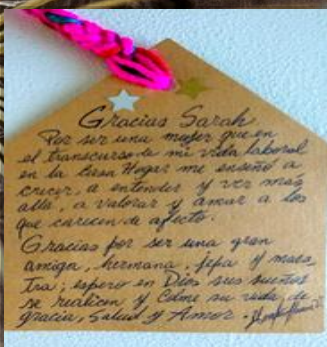 Gracias Sarah
Por ser una mujer que en
el transcurso de mi vida laboral
en la Casa Hogar me enseñó a
crecer, a entender y ver más
allá, a valorar y amar a los
que carecen de afecto.
Gracias por ser una gran
amiga, hermana, jefa y maes
tra; espero en Dios sus sueños
se realicen y Colme su vida de
gracia, Salud y Amor.